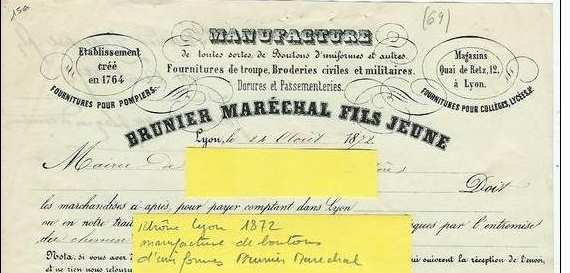 150
(69)
MANUFACTURE
de toutes sortes, de Boutons d'uniformes et autres.
Fournitures de troupe, Broderies civiles et militaires.
Dorures et Passementeries.
Etablissement
créé
en 1764
FOURNITURES POUR POMPIERS
Magasins
Quai de Retz, 12,
à Lyon.
FOURNITURES POUR COLLÉGES, LYCÉES, &
BRUNIER MARÉCHAL FILS JEUNE
Lyon, le 14 Août 1872
Mairie de
Doit
les marchandises ci-après, pour payer comptant dans Lyon
ou en notre trai
ques par l'entremise
des chemins
Nota, si vous avez
qui suivront la réception de l'envoi,
et ne rien nous retour
Rhône Lyon 1872
manufacture de boutons
d'uniformes Brunier Marechal